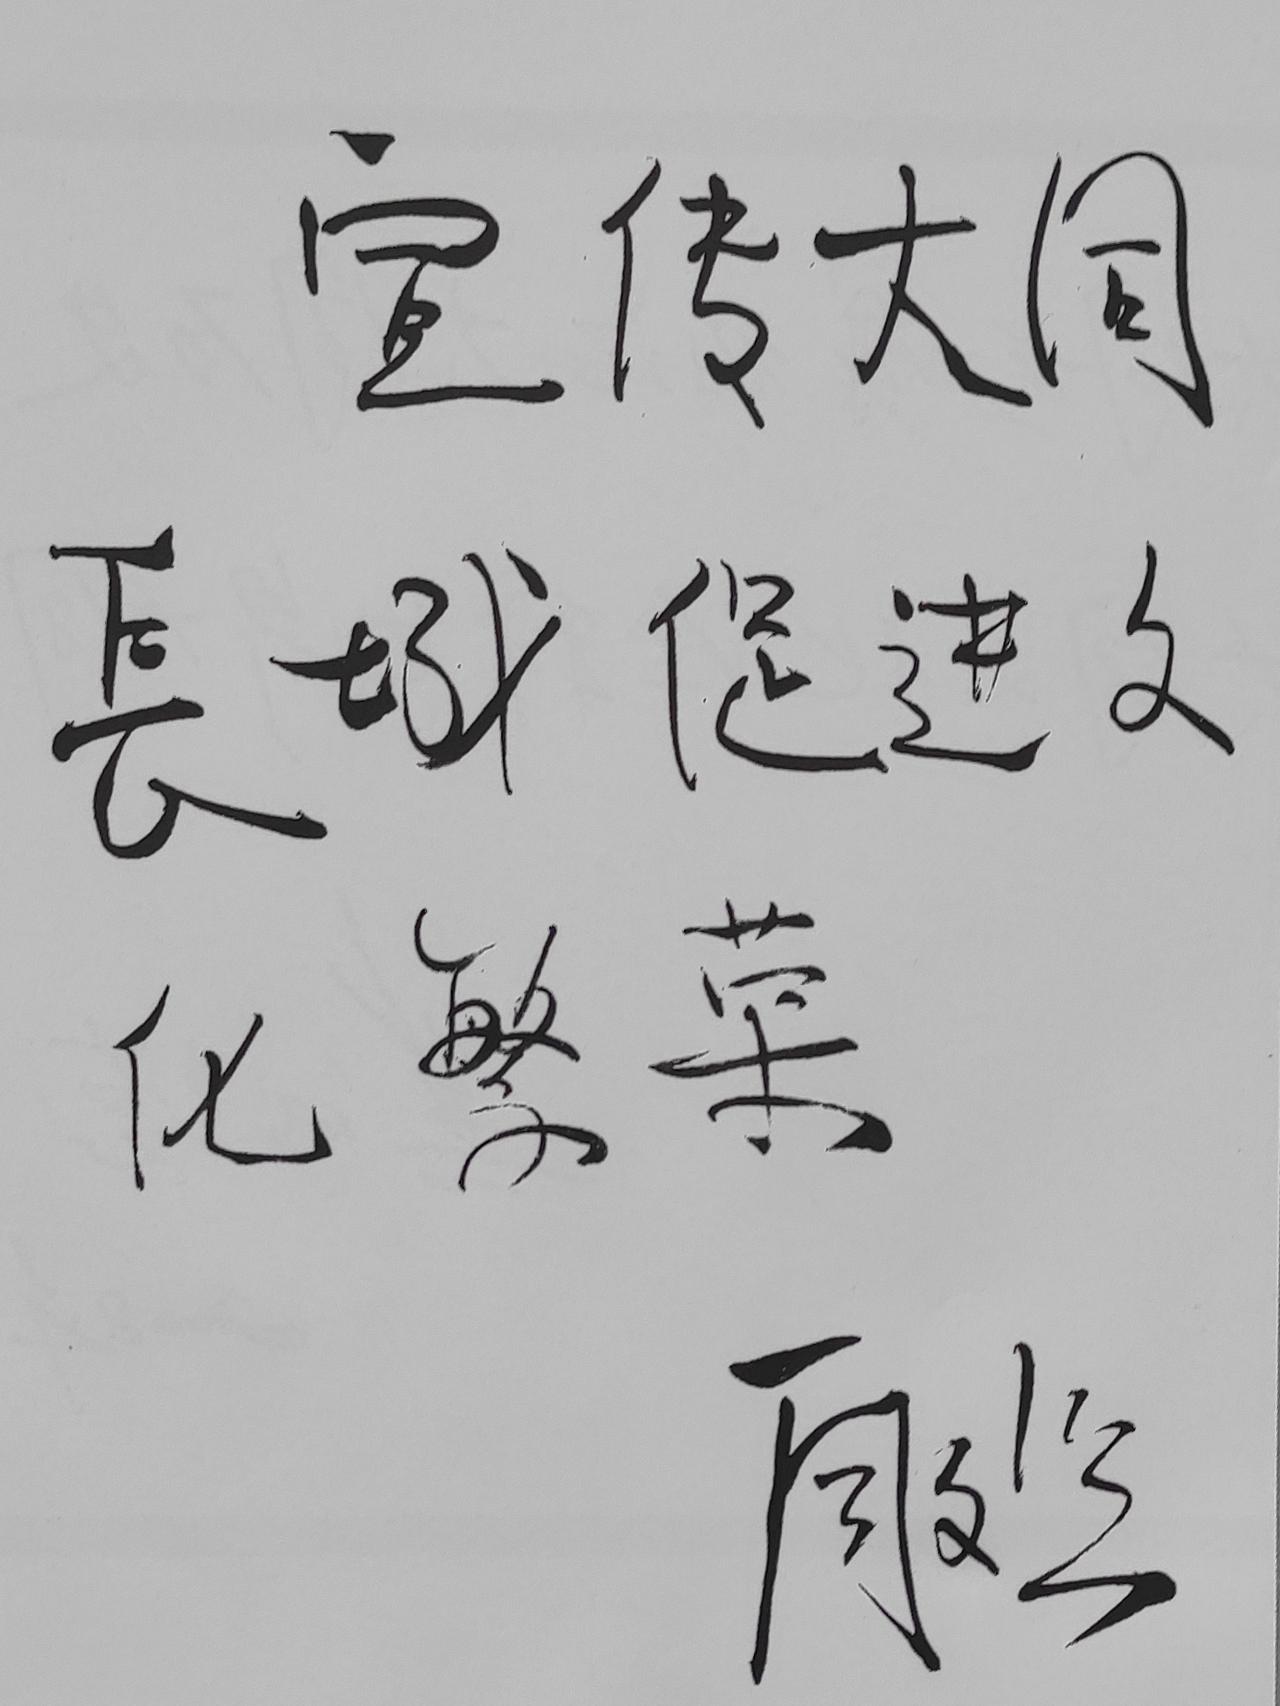 宣传大同
長城促进文
化繁荣